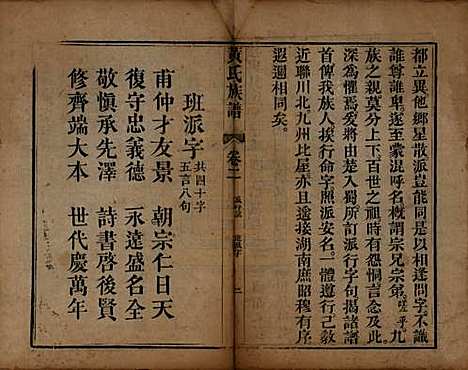 都立異他鄉星散派豈能同是以相逢問字不識
誰尊誰卑遂至蒙混呼名概謂宗兄宗弟嗟乎九
族之親莫分上下百世之祖時有怨恫言念及此
深為懼焉爰將入蜀所訂派行字句揭諸譜
首俾我族人挨行命字照派安名一體遵行已教
近聯川北九州比屋亦且遙接湖南庶昭穆有
遐邇相同矣
黃氏族譜
卷二
二
班派字
共四十字
五言八句
甫仲才友景 朝宗仁日天
復守忠義德 永遠盛名全
敬慎承先澤 詩書啓後賢
修齊端大本 世代慶萬年